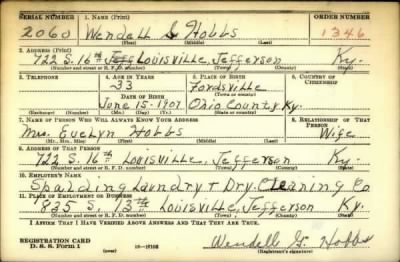 SERIAL NUMBER 1. NAME (Print) ORDER NUMBER
2060 Wendell G Hobbs 1346
(First) (Middle) (Last)
2. ADDRESS (Print)
722 S. 16th Jeff Louisville, Jefferson Ky.
(Number and street or R. F. D. number) (Town) (County) (State)
3. TELEPHONE 4. AGE IN YEARS 5. PLACE OF BIRTH 6. COUNTRY OF CITIZENSHIP
33 Fordsville
DATE OF BIRTH (Town or county)
June 15-1907 Ohio County Ky.
(Exchange) (Number) (Mo.) (Day) (Yr.) (State or country)
7. NAME OF PERSON WHO WILL ALWAYS KNOW YOUR ADDRESS 8. RELATIONSHIP OF THAT PERSON
Mrs. Evelyn Hobbs Wife
(Mr., Mrs., Miss) (First) (Middle) (Last)
9. ADDRESS OF THAT PERSON
722 S. 16th Louisville, Jefferson Ky.
(Number and street or R. F. D. number) (Town) (County) (State)
10. EMPLOYER'S NAME
Spalding Laundry + Dry. Cleaning Co
11. PLACE OF EMPLOYMENT OR BUSINESS
835 S. 13th Louisville, Jefferson Ky.
(Number and street or R. F. D. number) (Town) (County) (State)
I AFFIRM THAT I HAVE VERIFIED ABOVE ANSWERS AND THAT THEY ARE TRUE.
REGISTRATION CARD
D. S. S. Form 1 Wendell G. Hobbs
(Registrant's signature)